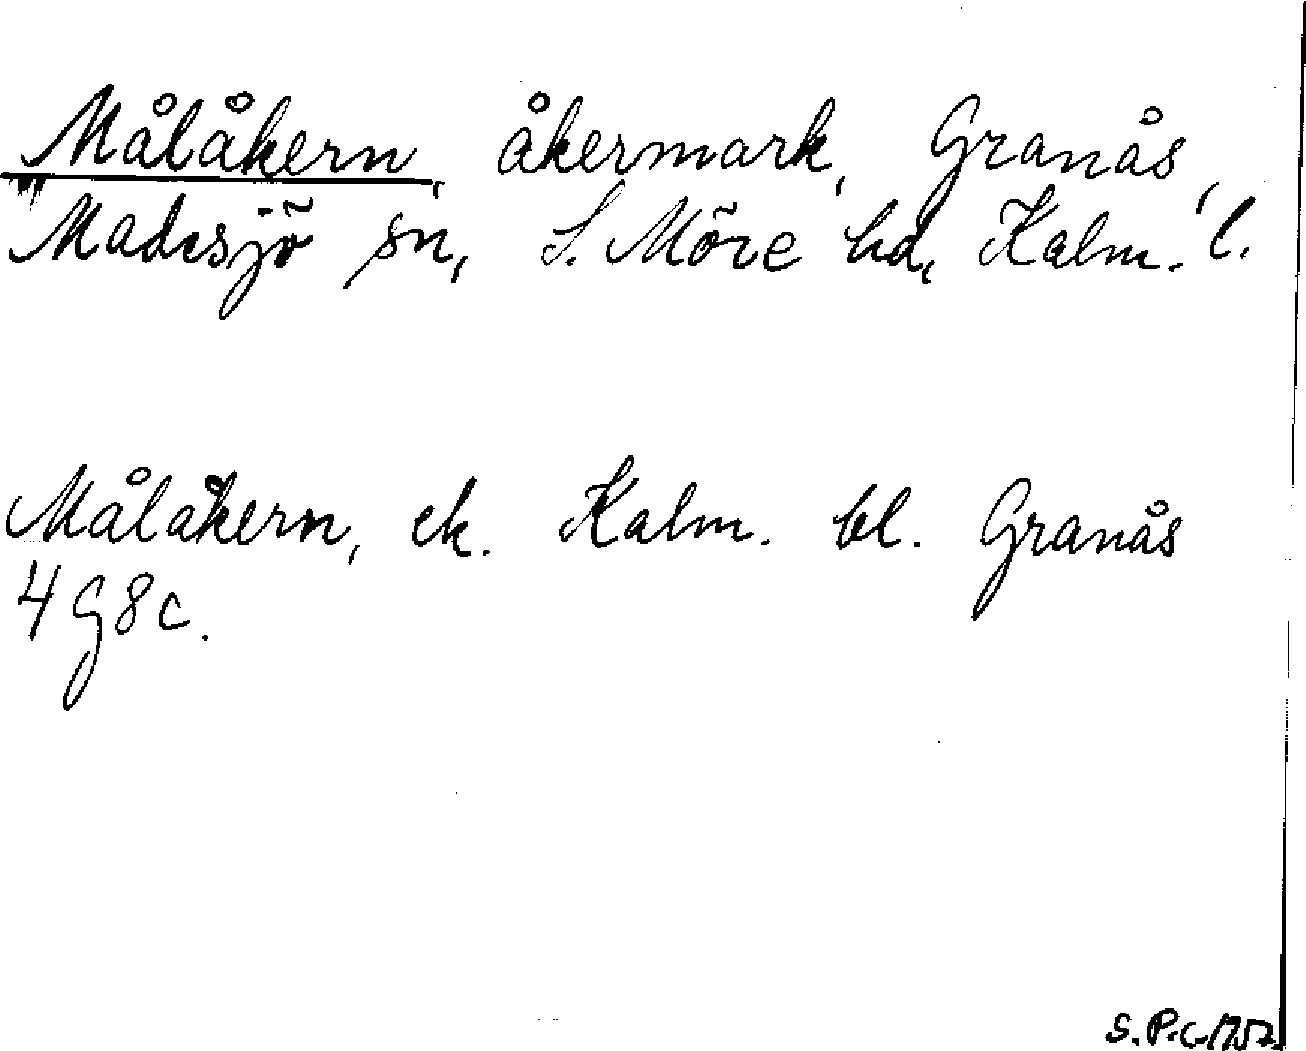 Målåkern, åkermark, Granås,
Madesjö sn, S. Möre hd, Kalm. l.
Målåkern, ek. Kalm. bl. Granås
4 G 8 c.